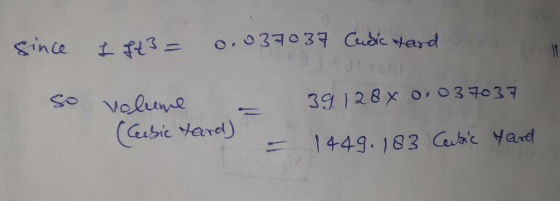 Since 1 ft³ = 0.037037 Cubic Yard
So volume = 39128 × 0.037037
(Cubic Yard)
= 1449.183 Cubic Yard